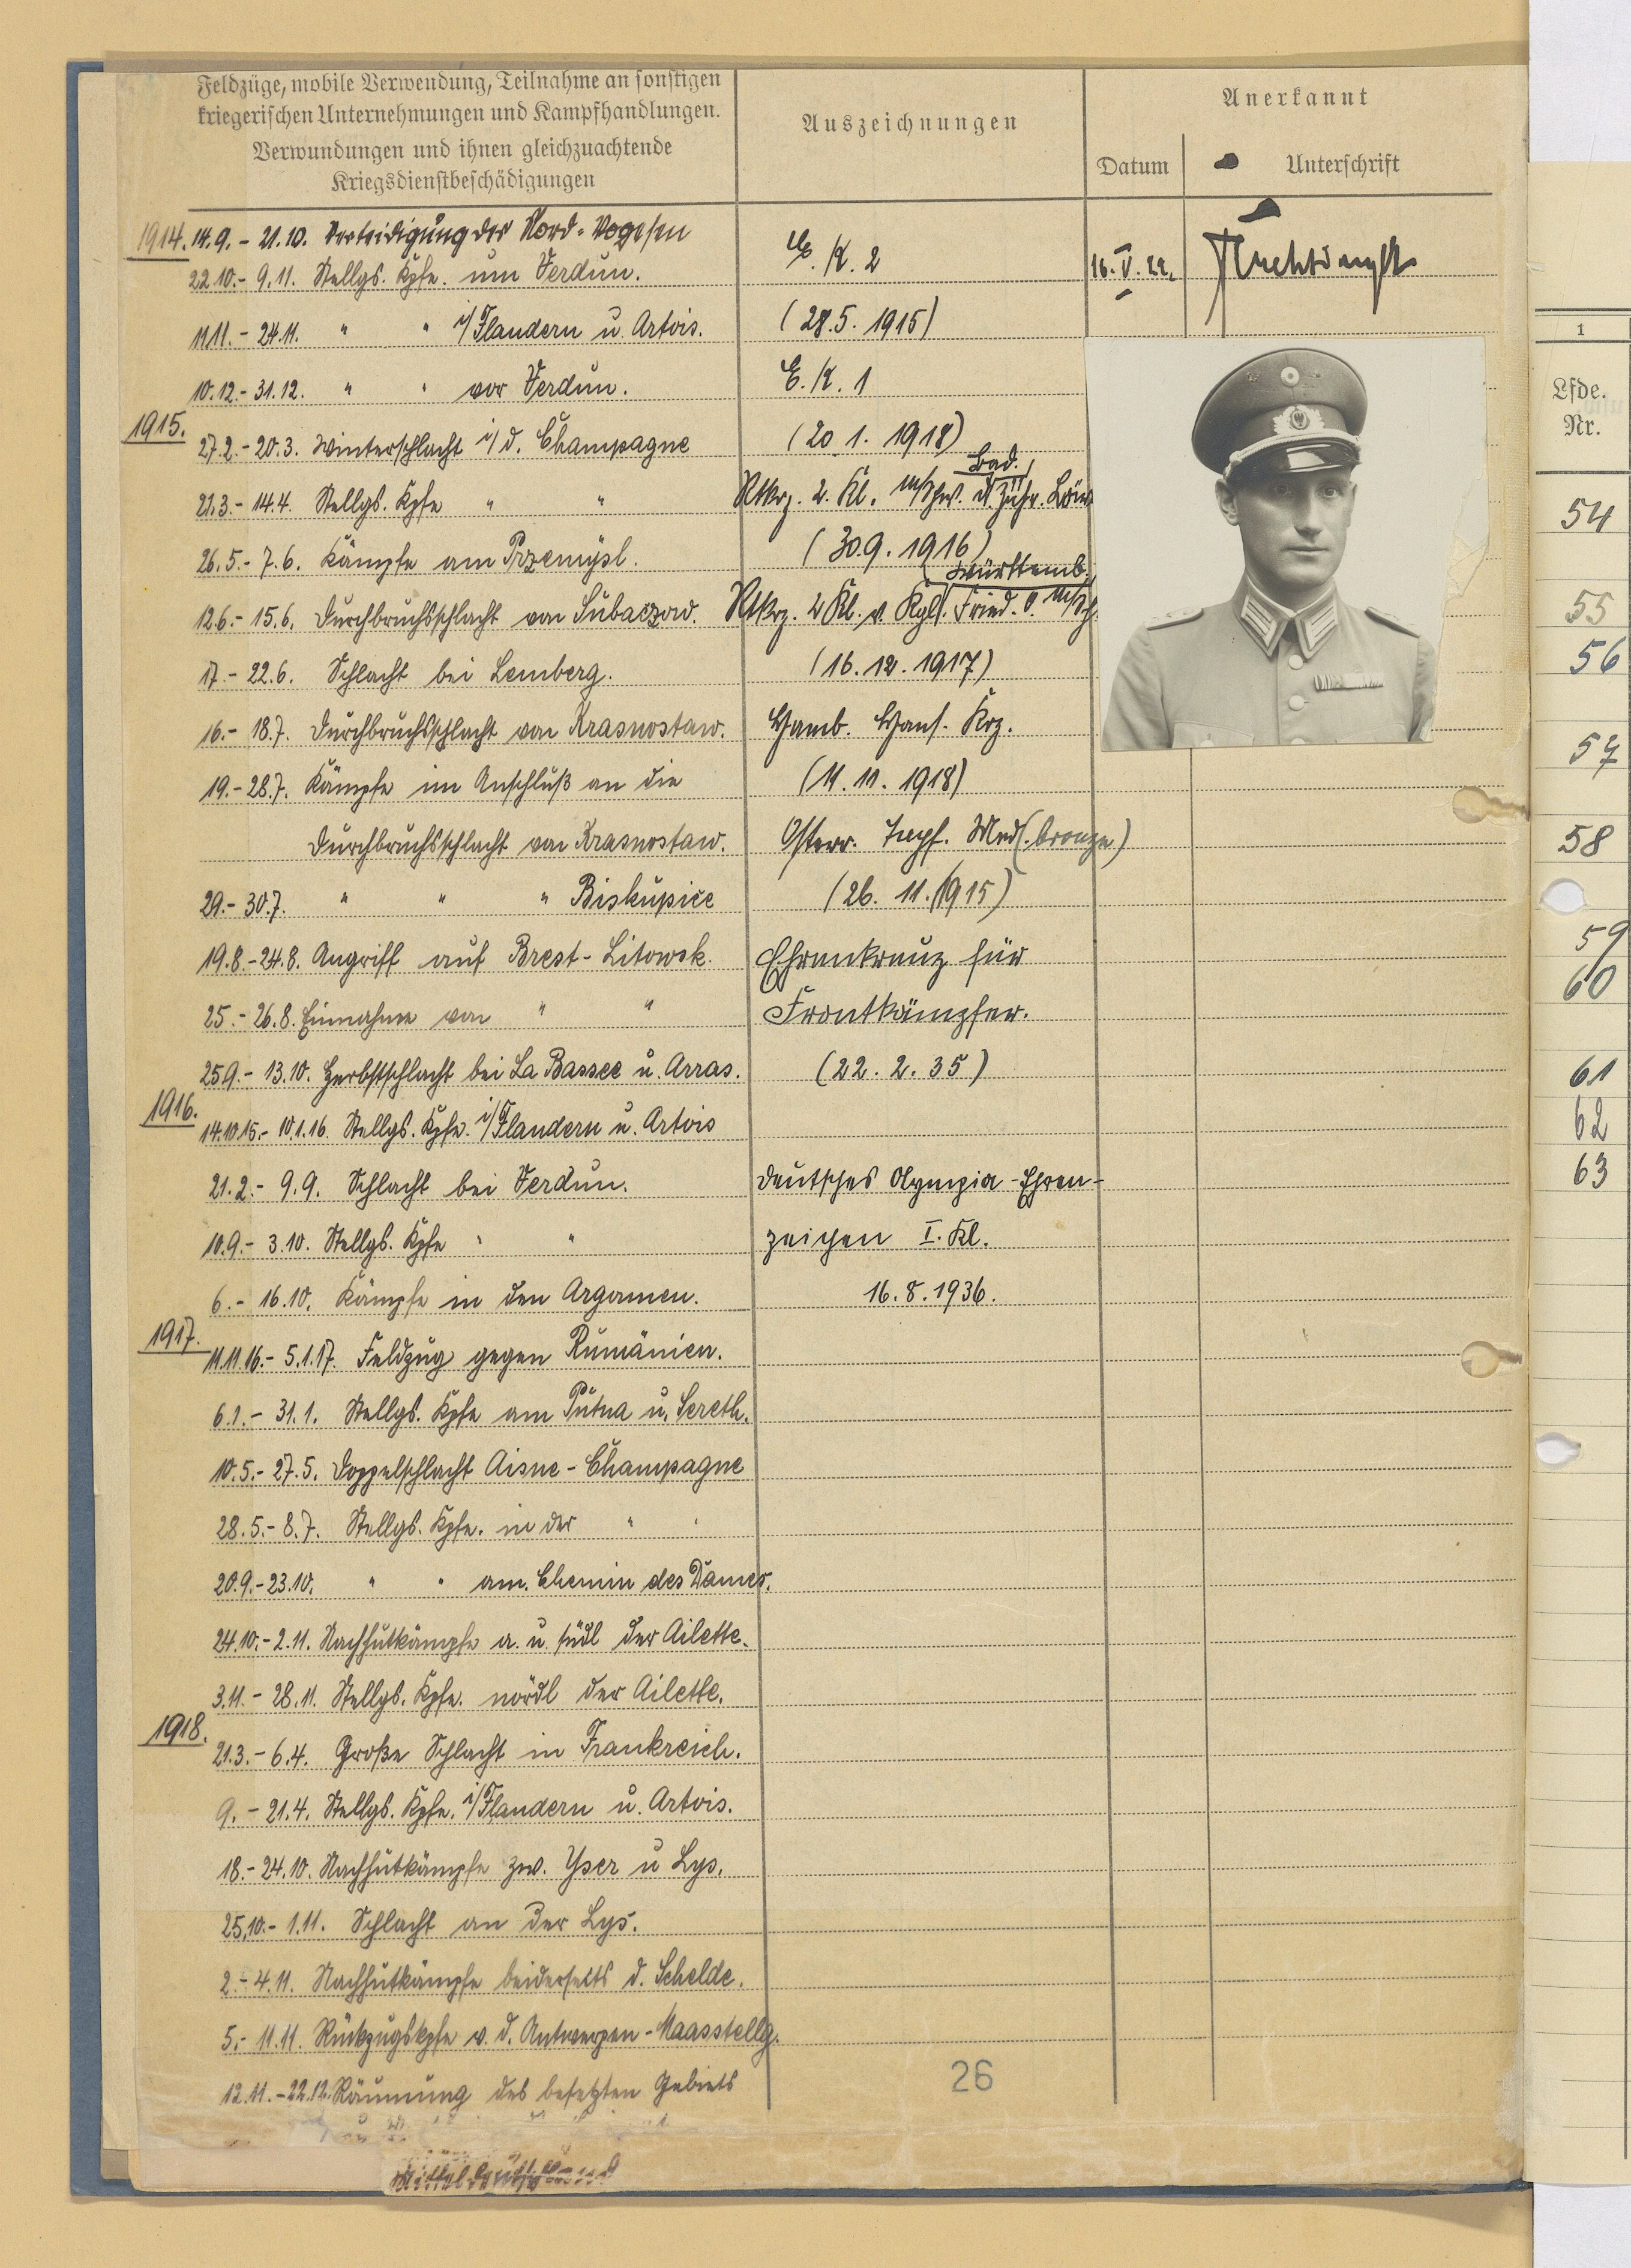 Feldzüge, mobile Verwendung, Teilnahme an sonstigen
kriegerischen Unternehmungen und Kampfhandlungen.
Verwundungen und ihnen gleichzuachtende
Kriegsdienstbeschädigungen
Auszeichnungen
Anerkannt
Datum
Unterschrift
1914. 14.9. - 21.10. Verteidigung der Nord-Vogesen
22.10. - 9.11. Stellgs. Kpfe. um Verdun.
11.11. - 24.11. " " i/Flandern u. Artois.
10.12. - 31.12. " " vor Verdun.
1915.
27.2. - 20.3. Winterschlacht i/d. Champagne
21.3. - 14.4. Stellgs. Kpfe " "
26.5. - 7.6. Kämpfe am Przemysl.
12.6. - 15.6. Durchbruchsschlacht von Lubaczow.
17. - 22.6. Schlacht bei Lemberg.
16. - 18.7. Durchbruchsschlacht von Krasnostaw.
19. - 28.7. Kämpfe im Anschluß an die
Durchbruchsschlacht von Krasnostaw.
29. - 30.7. " " " Biskupice
19.8. - 24.8. Angriff auf Brest-Litowsk.
25. - 26.8. Einnahme von " "
25.9. - 13.10. Herbstschlacht bei La Bassee u. Arras.
1916.
14.10.15. - 10.1.16. Stellgs. Kpfe. i/Flandern u. Artois
21.2. - 9.9. Schlacht bei Verdun.
10.9. - 3.10. Stellgs. Kpfe " "
6. - 16.10. Kämpfe in den Argonnen.
1917.
11.11.16. - 5.1.17. Feldzug gegen Rumänien.
6.1. - 31.1. Stellgs. Kpfe am Putna u. Sereth.
10.5. - 27.5. Doppelschlacht Aisne-Champagne
28.5. - 8.7. Stellgs. Kpfe. in der " "
20.9. - 23.10. " " am Chemin des Dames.
24.10. - 2.11. Nachhutkämpfe a. u. südl der Ailette.
3.11. - 28.11. Stellgs. Kpfe. nördl der Ailette.
1918.
21.3. - 6.4. Große Schlacht in Frankreich.
9. - 21.4. Stellgs. Kpfe. i/Flandern u. Artois.
18. - 24.10. Nachhutkämpfe zw. Yser u Lys.
25.10. - 1.11. Schlacht an der Lys.
2. - 4.11. Nachhutkämpfe beiderseits d. Schelde.
5. - 11.11. Rückzugskpfe v. d. Antwerpen-Maasstellg.
12.11. - 22.12. Räumung des besetzten Gebiets
E.K. 2
(28.5. 1915)
E.K. 1
(20.1. 1918)
Bad.
Rtkrz. 2. Kl. m/Schw. d. Zähr. Löw.
(30.9. 1916)
Württemb.
Rtkrz. 2 Kl. v. Kgl. Fried. O. m/Sch.
(16.12. 1917)
Hamb. Hans. Krz.
(11.11. 1918)
Österr. Tapf. Med. (bronze)
(26. 11. 1915)
Ehrenkreuz für
Frontkämpfer.
(22. 2. 35)
Deutsches Olympia-Ehren-
zeichen I. Kl.
16.8.1936.
26
16.V.22.
1
Lfde.
Nr.
54
55
56
57
58
59
60
61
62
63